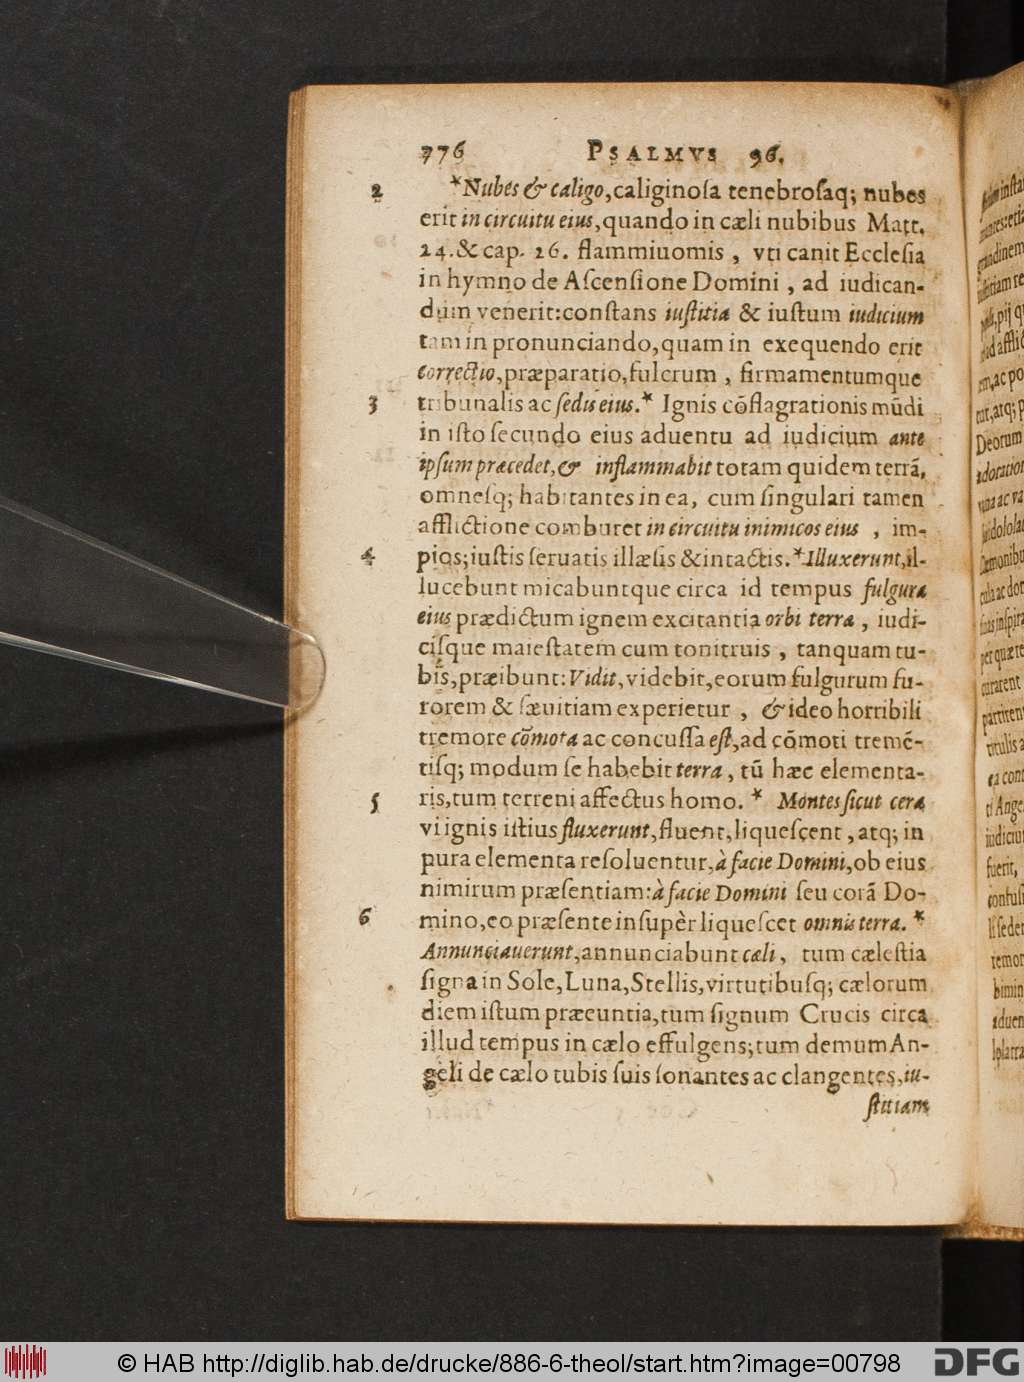 776 PSALMVS 96.
2 *Nubes & caligo, caliginoſa tenebroſaq; nubes
erit in circuitu eius, quando in cæli nubibus Matt.
24. & cap. 26. flammiuomis, vti canit Eccleſia
in hymno de Aſcenſione Domini, ad iudican-
dum venerit: conſtans iuſtitia & iuſtum iudicium
tam in pronunciando, quam in exequendo erit
correctio, præparatio, fulcrum, firmamentumque
3 tribunalis ac ſedis eius.* Ignis cōflagrationis mūdi
in iſto ſecundo eius aduentu ad iudicium ante
ipſum præcedet, & inflammabit totam quidem terrā,
omneſq; habitantes in ea, cum ſingulari tamen
afflictione comburet in circuitu inimicos eius, im-
4 pios; iuſtis ſeruatis illæſis & intactis.* Illuxerunt, il-
lucebunt micabuntque circa id tempus fulgura
eius prædictum ignem excitantia orbi terræ, iudi-
ciſque maieſtatem cum tonitruis, tanquam tu-
bis, præibunt: Vidit, videbit, eorum fulgurum fu-
rorem & ſæuitiam experietur, & ideo horribili
tremore cōmota ac concuſſa eſt, ad cōmoti tremē-
tiſq; modum ſe habebit terra, tū hæc elementa-
5 ris, tum terreni affectus homo. * Montes ſicut cera
vi ignis iſtius fluxerunt, fluent, liqueſcent, atq; in
pura elementa reſoluentur, à facie Domini, ob eius
nimirum præſentiam: à facie Domini ſeu corā Do-
6 mino, eo præſente inſupèr liqueſcet omnis terra. *
Annunciauerunt, annunciabunt cæli, tum cæleſtia
ſigna in Sole, Luna, Stellis, virtutibuſq; cælorum
diem iſtum præeuntia, tum ſignum Crucis circa
illud tempus in cælo effulgens; tum demum An-
geli de cælo tubis ſuis ſonantes ac clangentes, iu-
ſtitiam
© HAB http://diglib.hab.de/drucke/886-6-theol/start.htm?image=00798
DFG